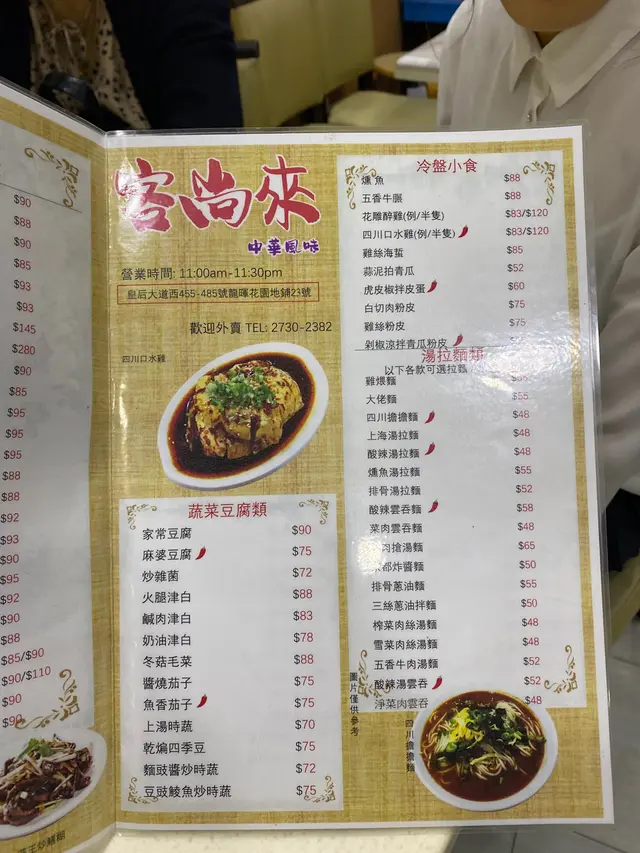 $90
$88
$90
$85
$93
$93
$145
$280
$90
$85
$95
$95
$95
$88
$88
$92
$93
$90
$95
$92
$90
$88
$85/$90
$90/$110
$90
客尚來
中華風味
營業時間: 11:00am-11:30pm
皇后大道西455-485號龍暉花園地鋪23號
歡迎外賣 TEL: 2730-2382
四川口水雞
蔬菜豆腐類
家常豆腐 $90
麻婆豆腐 $75
炒雜菌 $72
火腿津白 $88
鹹肉津白 $83
奶油津白 $78
冬菇毛菜 $88
醬燒茄子 $75
魚香茄子 $75
上湯時蔬 $70
乾煸四季豆 $75
麵豉醬炒時蔬 $72
豆豉鯪魚炒時蔬 $75
冷盤小食
燻魚 $88
五香牛腸 $88
花雕醉雞(例/半隻) $83/$120
四川口水雞(例/半隻) $83/$120
雞絲海蜇 $85
蒜泥拍青瓜 $52
虎皮椒拌皮蛋 $60
白切肉粉皮 $75
雞絲粉皮 $75
剁椒涼拌青瓜粉皮
湯拉麵類
以下各款可選拉麵
雞煨麵
大佬麵 $55
四川擔擔麵 $48
上海湯拉麵 $48
酸辣湯拉麵 $48
燻魚湯拉麵 $55
排骨湯拉麵 $52
酸辣雲吞麵 $58
菜肉雲吞麵 $48
肉搶湯麵 $65
都炸醬麵 $50
排骨蔥油麵 $55
三絲蔥油拌麵 $50
榨菜肉絲湯麵 $48
雪菜肉絲湯麵 $48
五香牛肉湯麵 $52
酸辣湯雲吞 $52
淨菜肉雲吞 $48
圖片僅供參考
四川擔擔麵